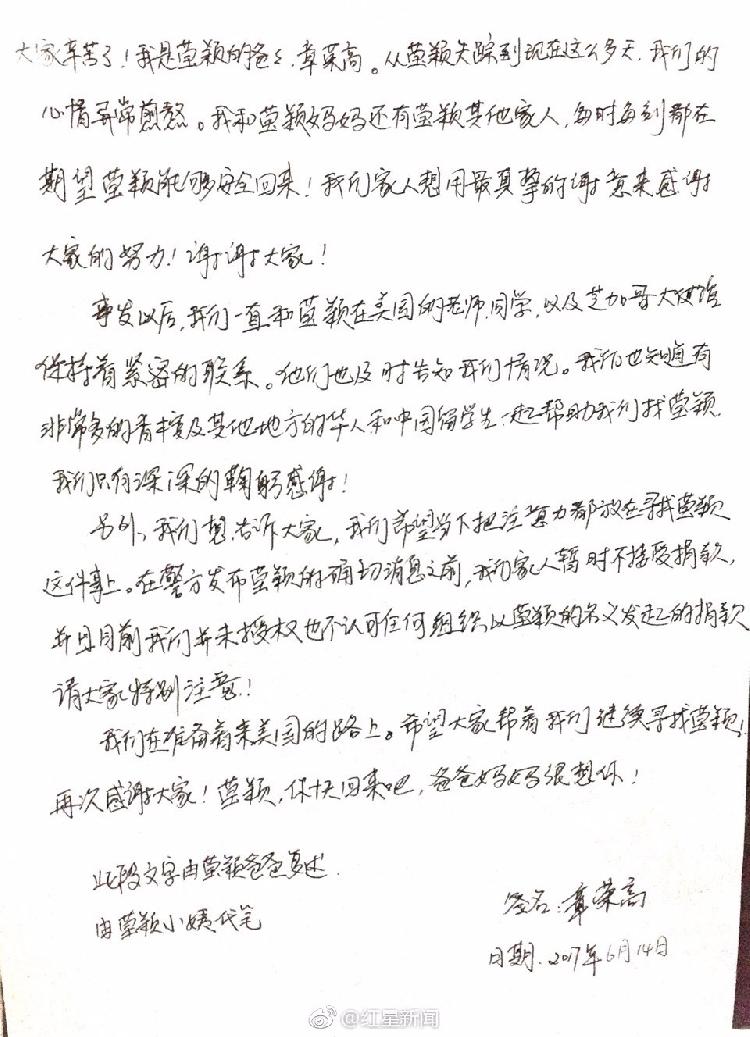 大家辛苦了！我是莹颖的爸爸，章荣高。从莹颖失踪到现在这么多天，我们的
心情异常煎熬。我和莹颖妈妈还有莹颖其他家人，每时每刻都在
期望莹颖能够安全回来！我们家人想用最真挚的谢意来感谢
大家的努力！谢谢大家！
事发以后，我们一直和莹颖在美国的老师、同学，以及芝加哥大使馆
保持着紧密的联系。他们也及时告知我们情况。我们也知道有
非常多的香槟及其他地方的华人和中国留学生一起帮助我们找莹颖，
我们只有深深的鞠躬感谢！
另外，我们想告诉大家，我们希望当下把注意力都放在寻找莹颖
这件事上。在警方发布莹颖的确切消息之前，我们家人暂时不接受捐款，
并且目前我们并未授权也不认可任何组织以莹颖的名义发起的捐款
请大家特别注意！
我们在准备着来美国的路上。希望大家帮着我们继续寻找莹颖！
再次感谢大家！莹颖，你快回来吧，爸爸妈妈很想你！
此段文字由莹颖爸爸复述.
由莹颖小姨代笔
签名：章荣高
日期.2017年6月14日
@红星新闻